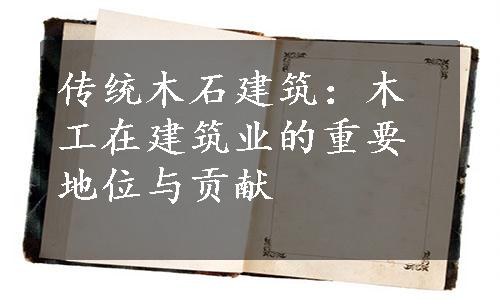 传统木石建筑：木
工在建筑业的重要
地位与贡献